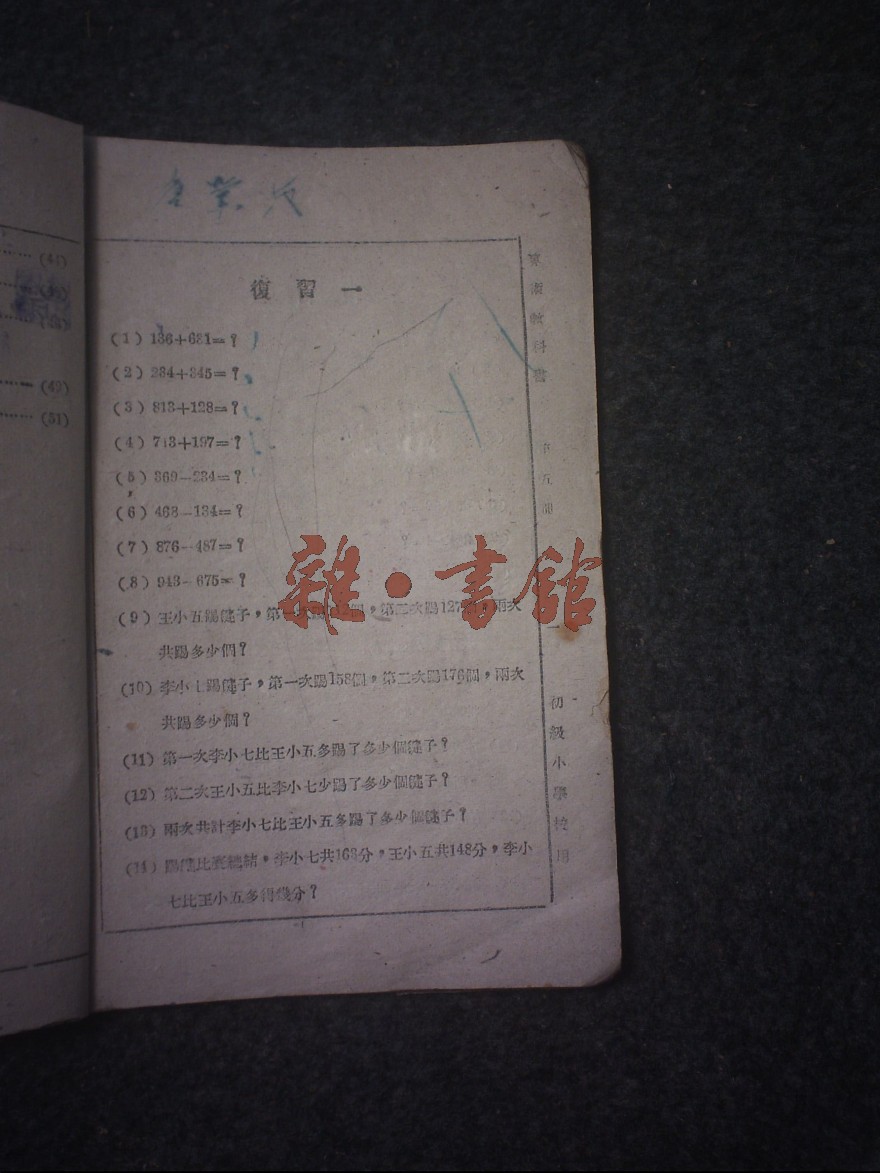 復習一
(1) 136+681=?
(2) 234+345=?
(3) 813+128=?
(4) 743+197=?
(5) 369-234=?
(6) 468-134=?
(7) 876-487=?
(8) 943-675=?
(9) 王小五踢毽子,第一次踢 2個,第二次踢127 兩次
共踢多少個?
(10) 李小七踢毽子,第一次踢158個,第二次踢176個,兩次
共踢多少個?
(11) 第一次李小七比王小五多踢了多少個毽子?
(12) 第二次王小五比李小七少踢了多少個毽子?
(13) 兩次共計李小七比王小五多踢了多少個毽子?
(14) 踢毽比賽總結,李小七共168分,王小五共148分,李小
七比王小五多得幾分?
教科書
初級小學校用
雜·書館
(44)
(49)
(51)